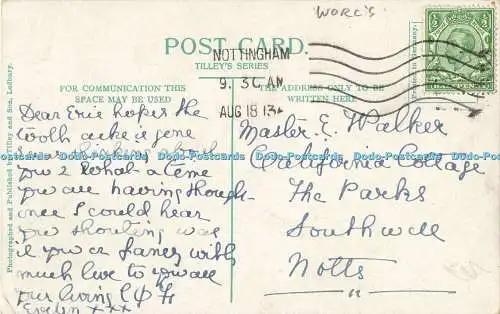 WORC'S
POST CARD.
TILLEY'S SERIES
NOTTINGHAM
9.30 AM
AUG 18 13
FOR COMMUNICATION THIS
SPACE MAY BE USED
THE ADDRESS ONLY TO BE
WRITTEN HERE
Photographed and Published by Tilley and Son, Ledbury.
Printed in Germany.
Dear Eric hope the
tooth ache is gone
I was thinking about
you 2 what a time
you are having though
once I could hear
you shouting was
it you or fancy with
much love to you all
your loving
Evelyn xxx
Master E. Walker
California Cottage
The Parks
Southwell
Notts
Dodo-Postcards Dodo-Postcards Dodo-Postcards Dodo-Postcards